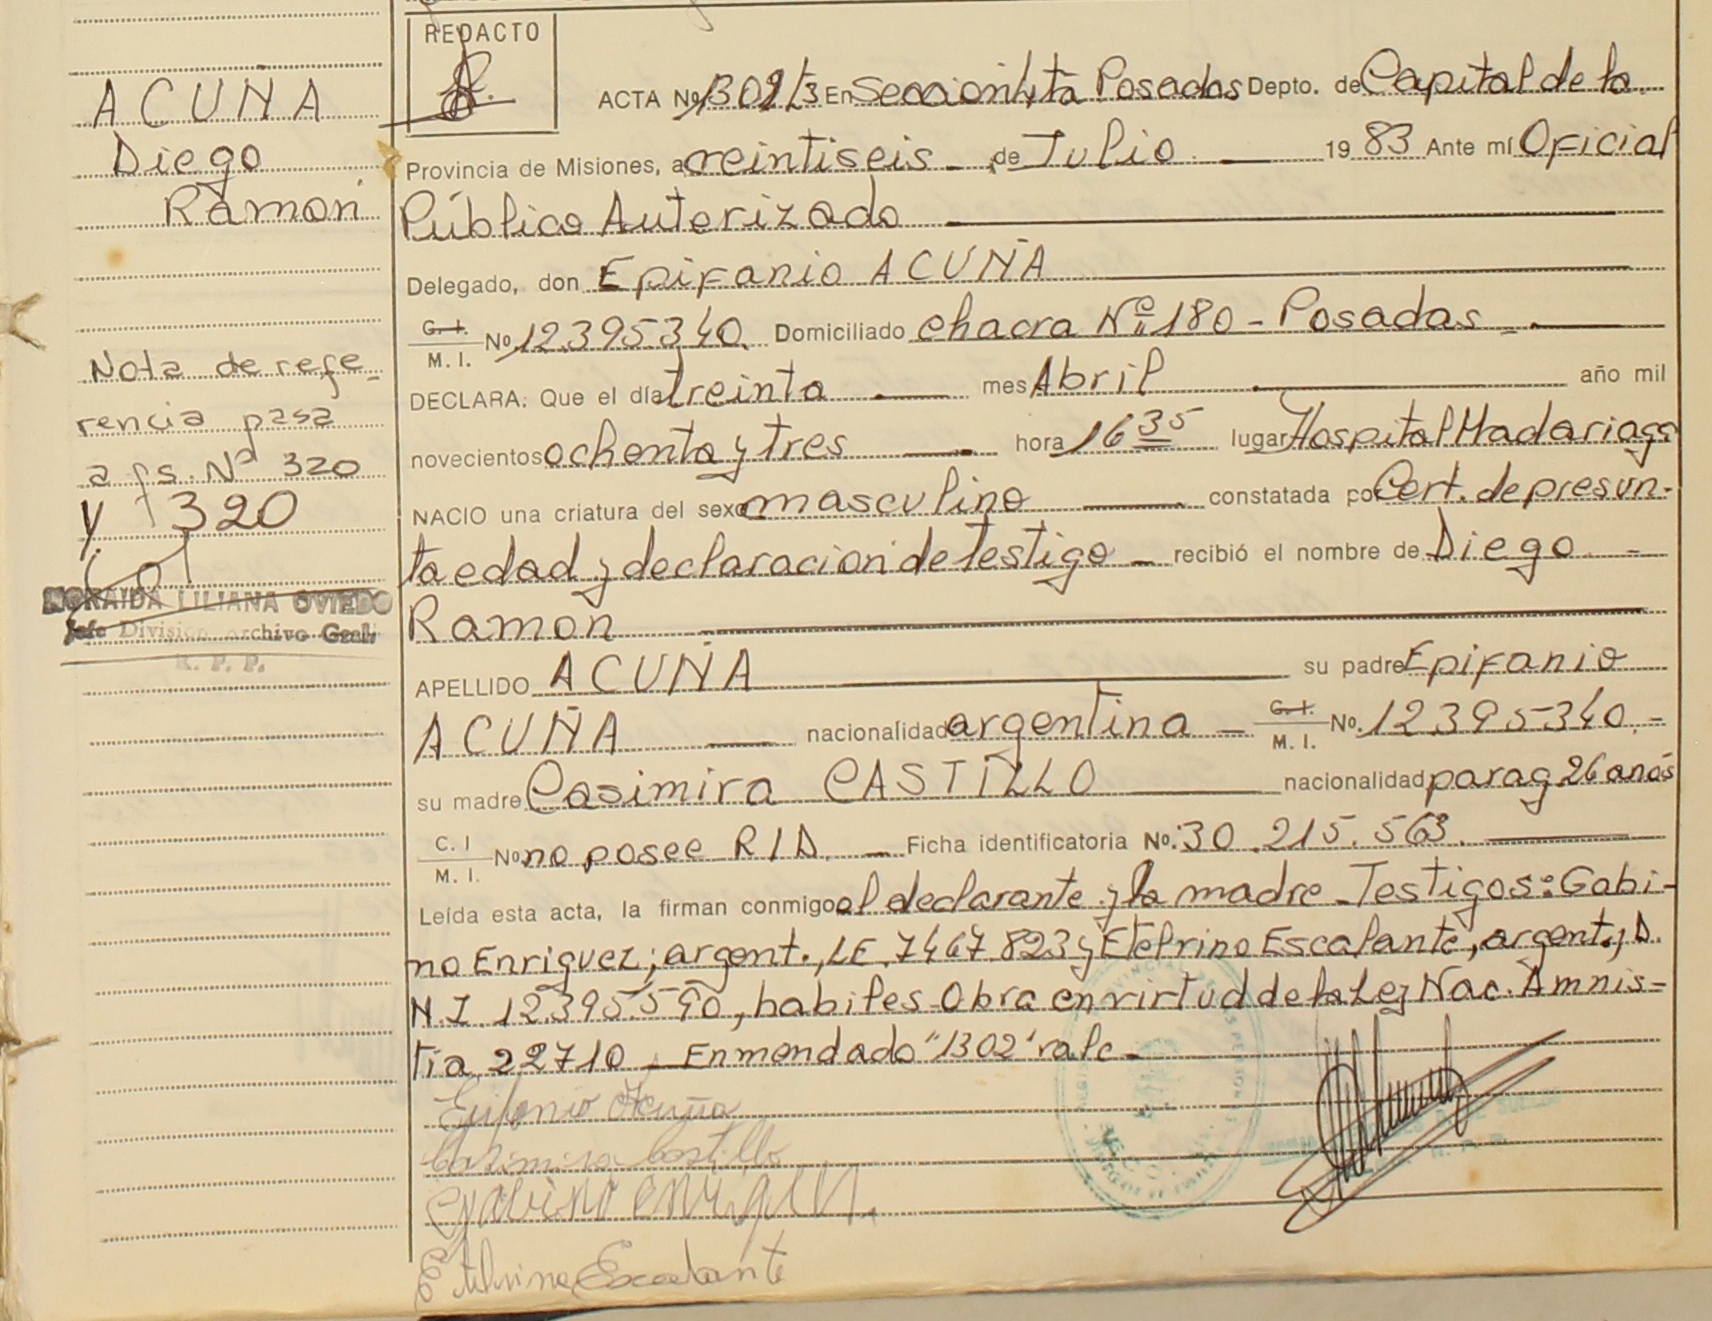 ACUÑA
Diego
Ramon
Nota de refe-
rencia pasa
a fs. Nº 320
y 320
NORAIDA LILIANA OVIEDO
Jefe División Archivo Gral.
R. P. P.
REDACTO
ACTA Nº 1302 En Seccion 4ta Posadas Depto. de Capital de la
Provincia de Misiones, a veintiseis - de Julio 1983 Ante mí Oficial
Público Autorizado
Delegado, don Epifanio ACUÑA
C. I. M. I. Nº 12.395.340. Domiciliado chacra Nº 180 - Posadas -
DECLARA: Que el día treinta mes Abril año mil
novecientos ochenta y tres hora 16 35 lugar Hospital Madariaga
NACIO una criatura del sexo masculino constatada por Cert. de presun-
ta edad y declaracion de testigo - recibió el nombre de Diego -
Ramon
APELLIDO ACUÑA su padre Epifanio
ACUÑA nacionalidad argentina - C. I. M. I. Nº. 12395340. -
su madre Casimira CASTILLO nacionalidad parag 26 años
C. I M. I. Nº no posee R/D. - Ficha identificatoria Nº. 30.215.563.
Leída esta acta, la firman conmigo el declarante y la madre - Testigos: Gabi-
no Enriquez; argent., LE. 7467.823 y Etelvino Escalante, argent., D.
N.I 12.395.590, habiles - Obra en virtud de la Ley Nac. Amnis-
tia 22710 - Enmendado "1302" vale -
Epifanio Acuña
Casimira Castillo
Gabino Enriquez
Etelvino Escalante